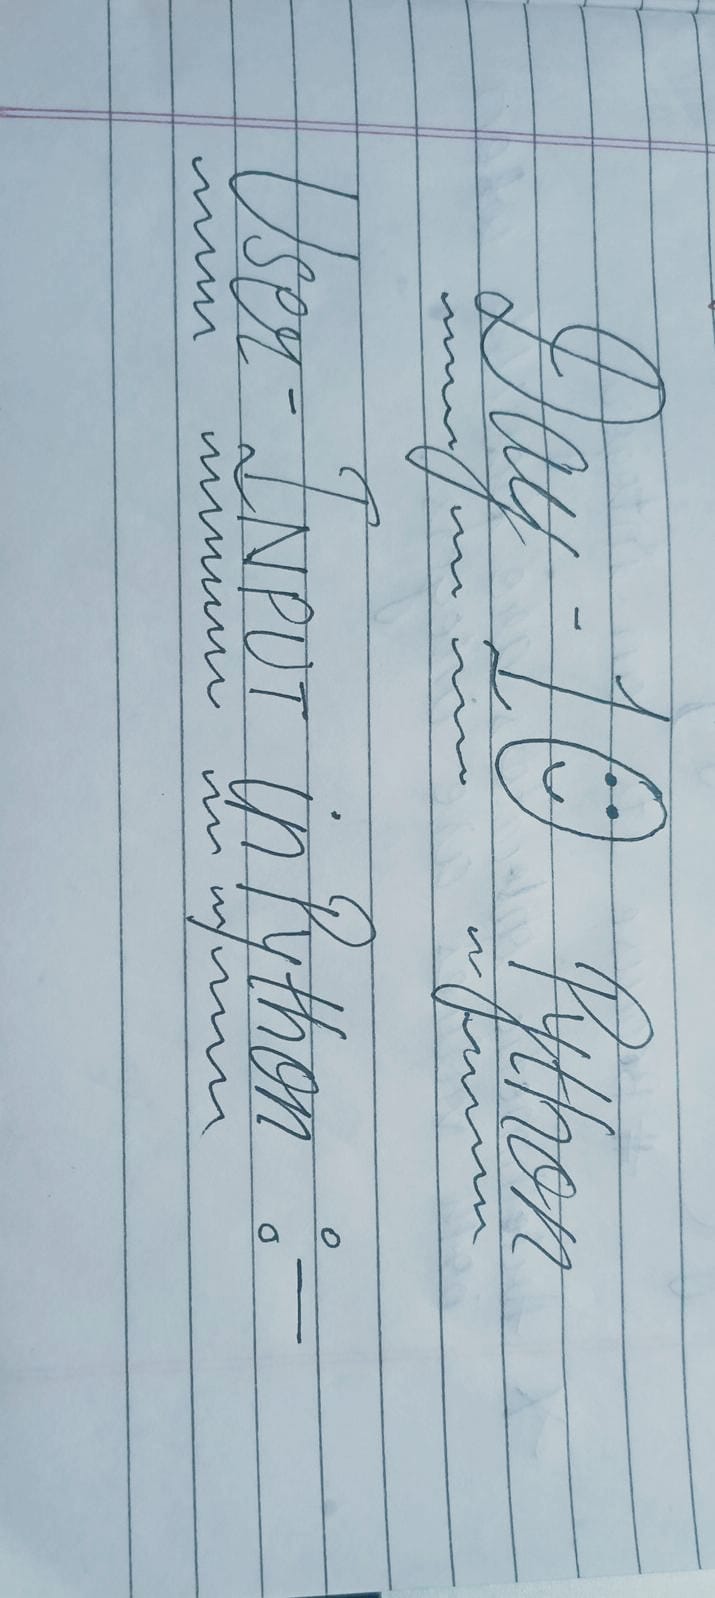 Day - 10 Python
User - INPUT in Python :-